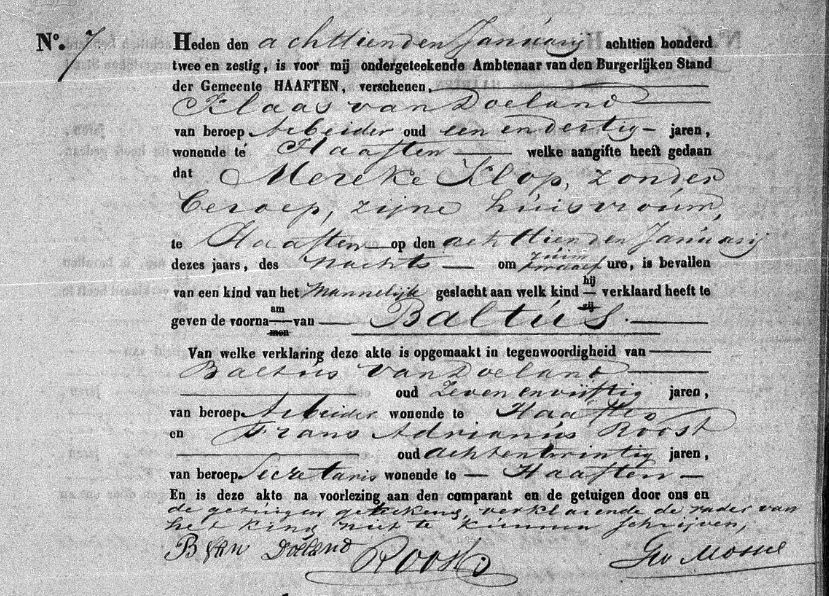 No. 7 Heden den achttienden Januarij achttien honderd
twee en zestig, is voor mij ondergeteekende Ambtenaar van den Burgerlijken Stand
der Gemeente HAAFTEN, verschenen,
Klaas van Doeland
van beroep Arbeider oud een en dertig jaren,
wonende te Haaften welke aangifte heeft gedaan
dat Mereke Klop, zonder
beroep, zijne huisvrouw,
te Haaften op den achttienden Januarij
dezes jaars, des nachts om ruim twaalf ure, is bevallen
van een kind van het Mannelijk geslacht aan welk kind hij zij verklaard heeft te
geven de voorna am men van Baltus.
Van welke verklaring deze akte is opgemaakt in tegenwoordigheid van
Baltus van Doeland
oud Zeven en vijftig jaren,
van beroep Arbeider wonende te Haaften
en Frans Adrianus Roost
oud achtentwintig jaren,
van beroep Secretaris wonende te Haaften
En is deze akte na voorlezing aan den comparant en de getuigen door ons en
de getuigen geteekend, verklarende de vader van
het kind niet te kunnen schrijven,
B van Doeland Roost